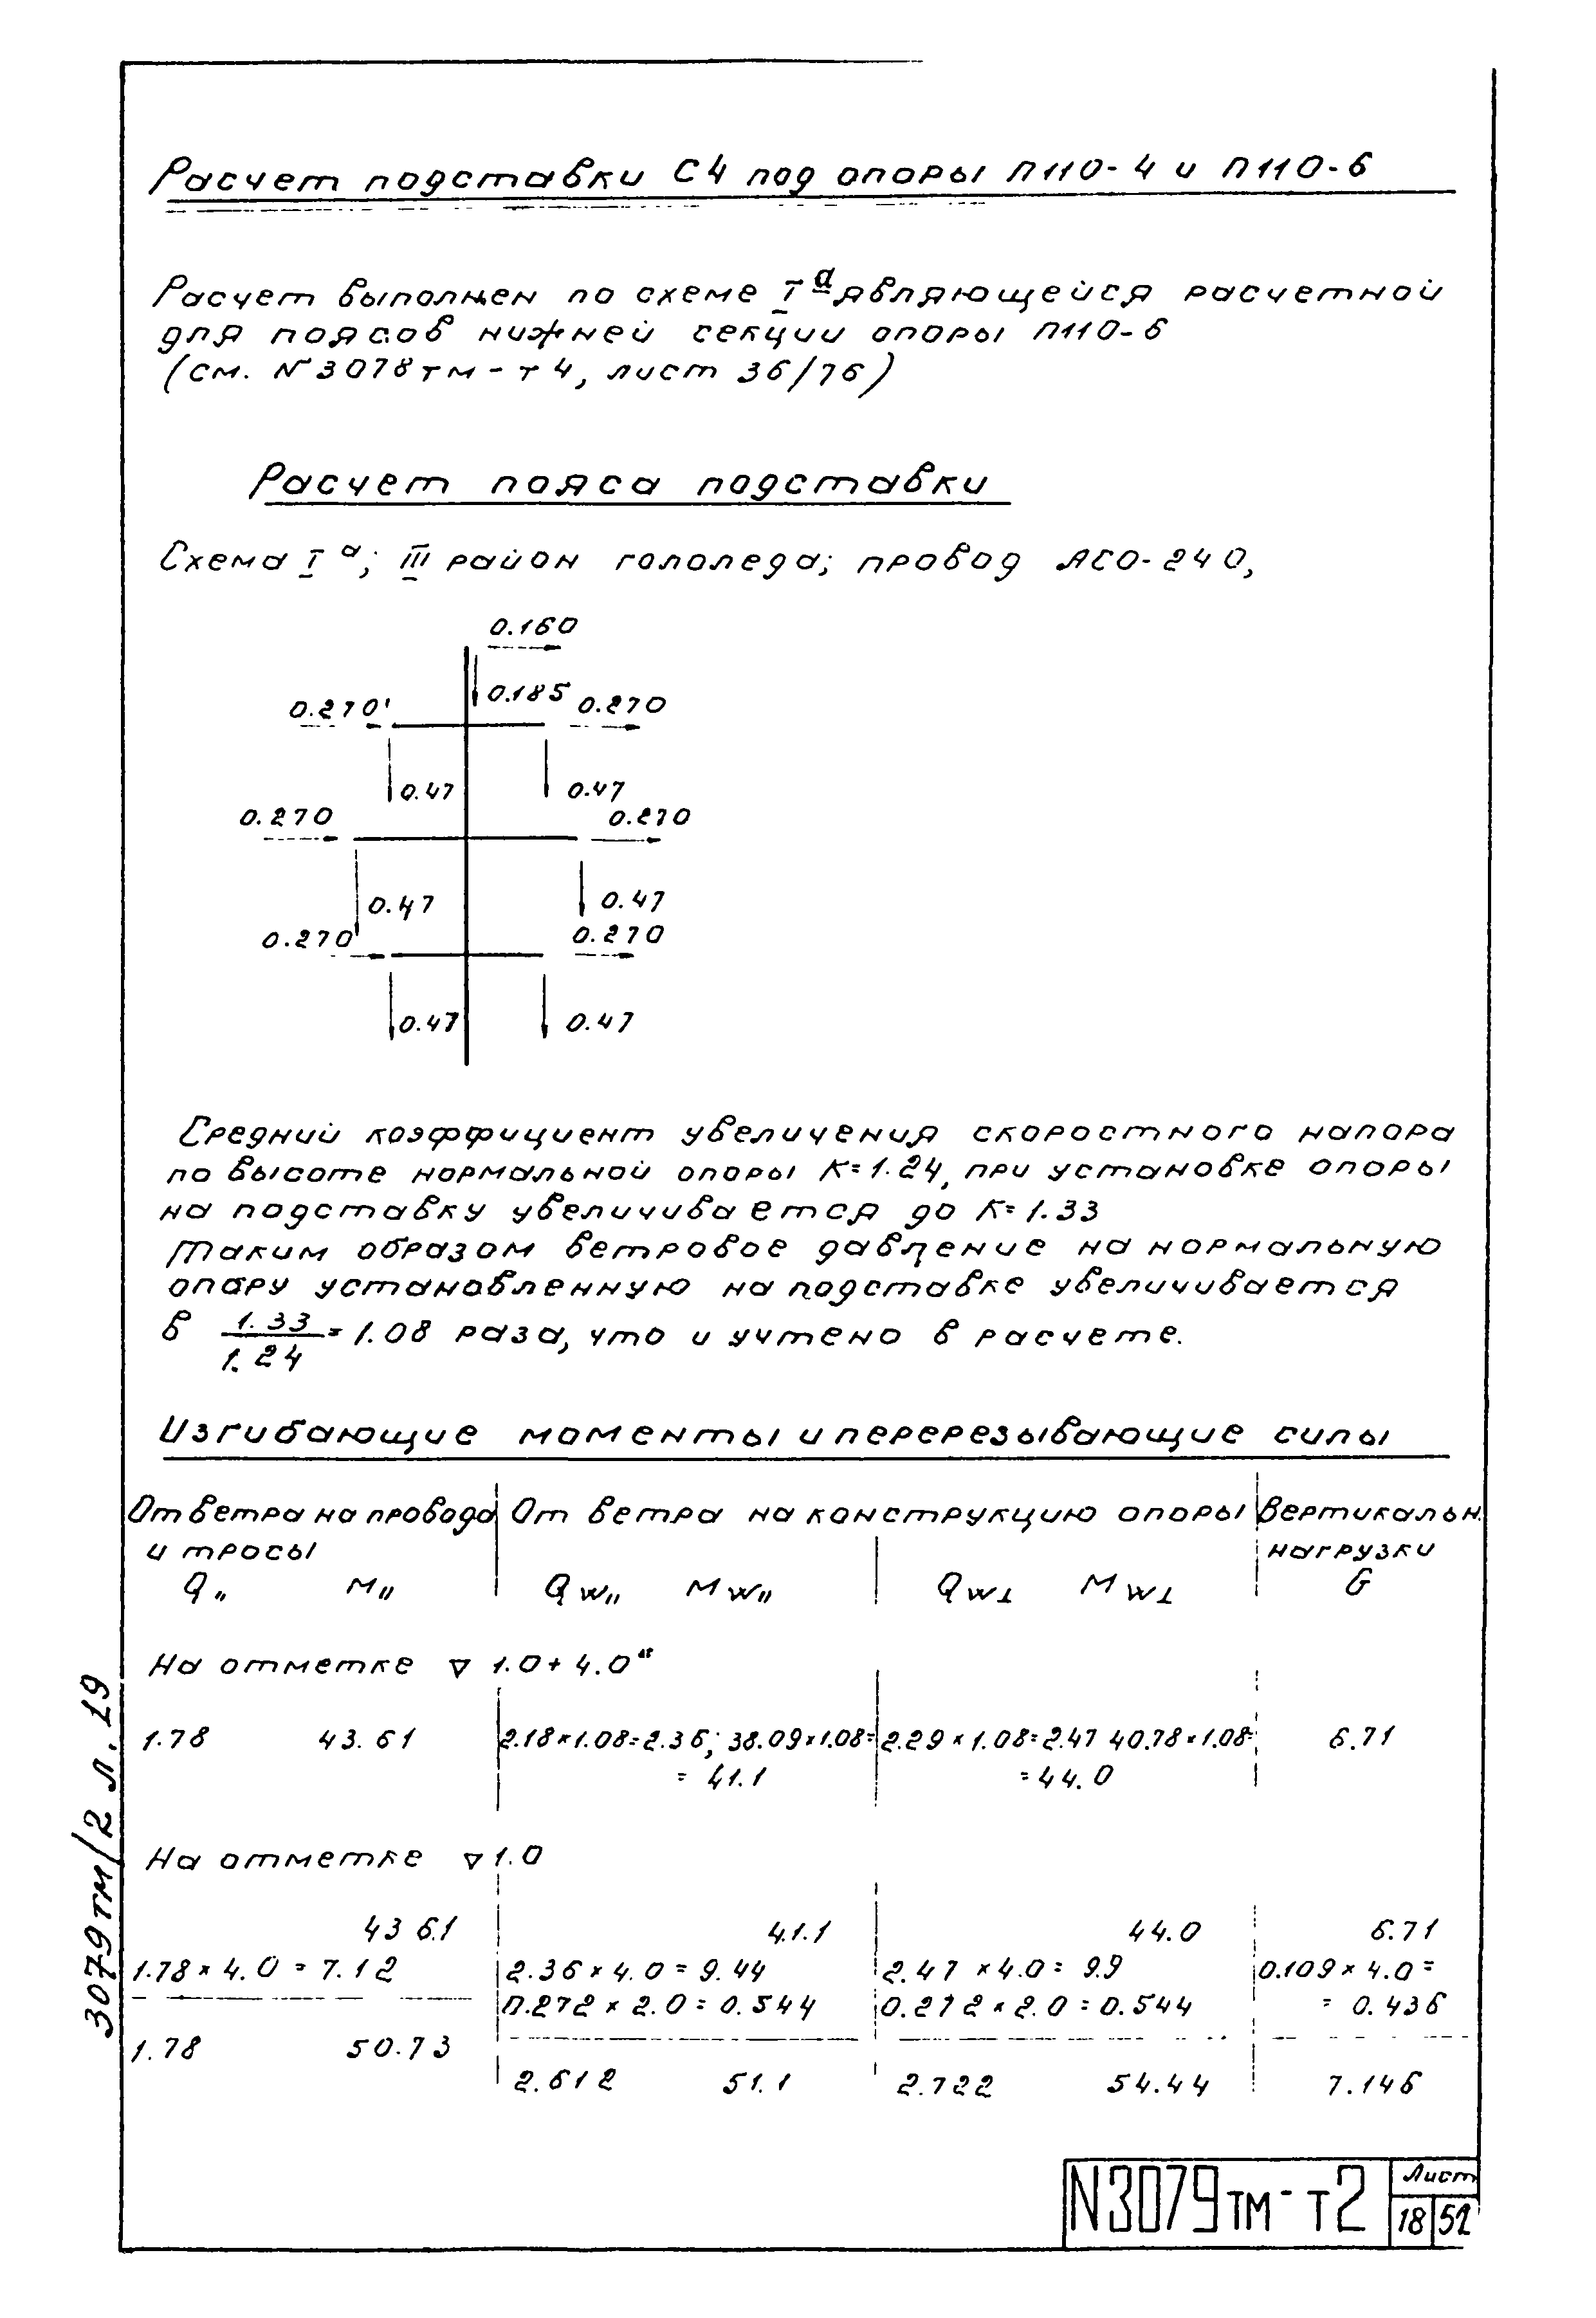 Расчет подставки С4 под опоры П110-4 и П110-6
Расчет выполнен по схеме Iª являющейся расчетной
для поясов нижней секции опоры П110-6
(см. №3078тм-т4, лист 36/76)
Расчет пояса подставки
Схема Iª; III район гололеда; провод АСО-240,
0.160
0.185
0.270 0.270
0.47 0.47
0.270 0.270
0.47 0.47
0.270 0.270
0.47 0.47
Средний коэффициент увеличения скоростного напора
по высоте нормальной опоры К=1.24, при установке опоры
на подставку увеличивается до К=1.33
Таким образом ветровое давление на нормальную
опору установленную на подставке увеличивается
в 1.33/1.24 = 1.08 раза, что и учтено в расчете.
Изгибающие моменты и перерезывающие силы
От ветра на провода От ветра на конструкцию опоры Вертикальн.
и тросы нагрузки
Q" M" Qw" Mw" Qw⊥ Mw⊥ G
На отметке ▽ 1.0+4.0м
1.78 43.61 2.18×1.08=2.36; 38.09×1.08= 2.29×1.08=2.47 40.78×1.08= 6.71
= 41.1 =44.0
На отметке ▽1.0
43 61 41.1 44.0 6.71
1.78×4.0=7.12 2.36×4.0=9.44 2.47×4.0=9.9 0.109×4.0=
0.272×2.0=0.544 0.272×2.0=0.544 = 0.436
1.78 50.73 2.612 51.1 2.722 54.44 7.146
3079тм/2 л.19
N3079тм-т2
Лист
18 52